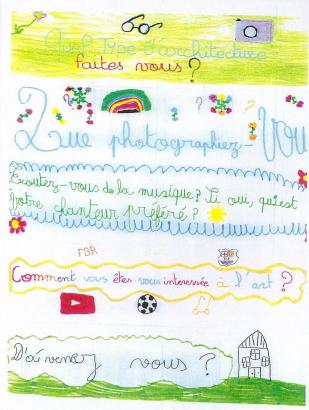 Quel Type d'architecture
faites vous?
Que photographiez-Vou
Écoutez-vous de la musique? Si oui, qui est
Votre chanteur préféré?
FBR
Comment vous êtes-vous interessée à l'art?
D'où venez vous?